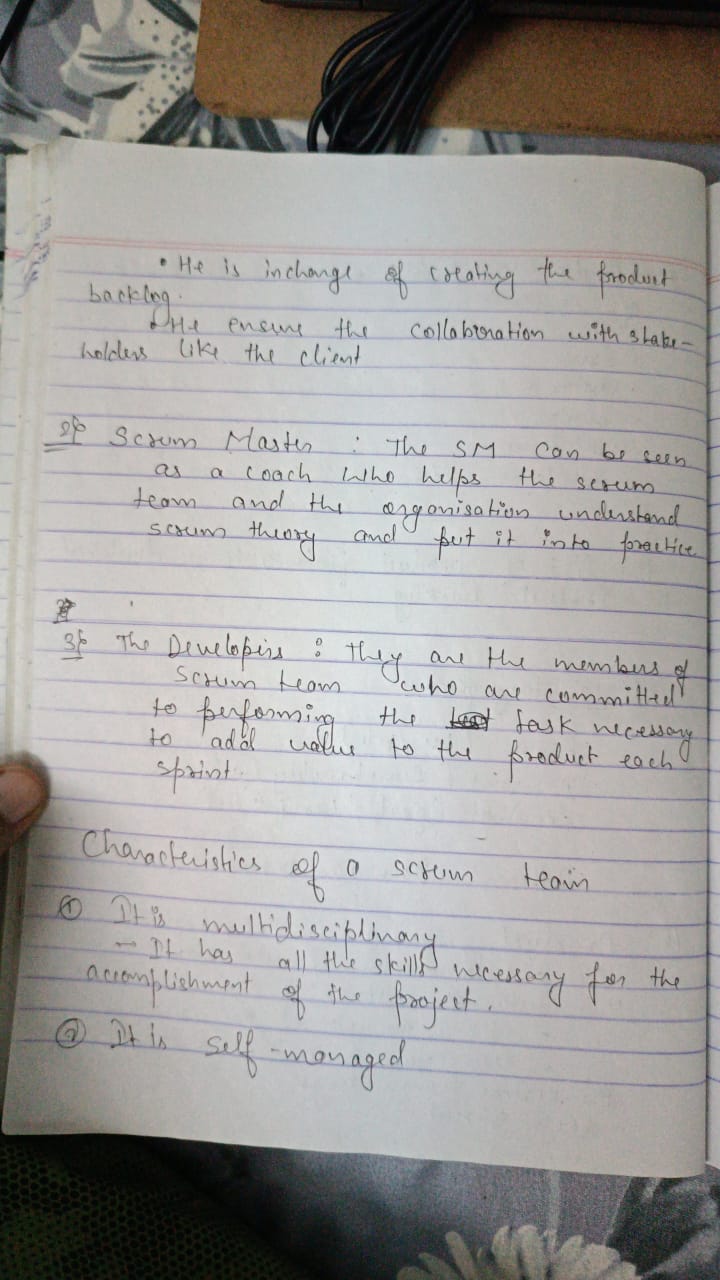 • He is incharge of creating the product
backlog.
• He ensure the collaboration with stake-
holders like the client
2} Scrum Master : The SM can be seen
as a coach who helps the scrum
team and the organisation understand
scrum theory and put it into practice
3} The Developers : They are the members of
scrum team who are committed
to performing the task necessary
to add value to the product each
sprint.
Characteristics of a scrum team
① It is multidisciplinary
- It has all the skills necessary for the
accomplishment of the project.
② It is self-managed